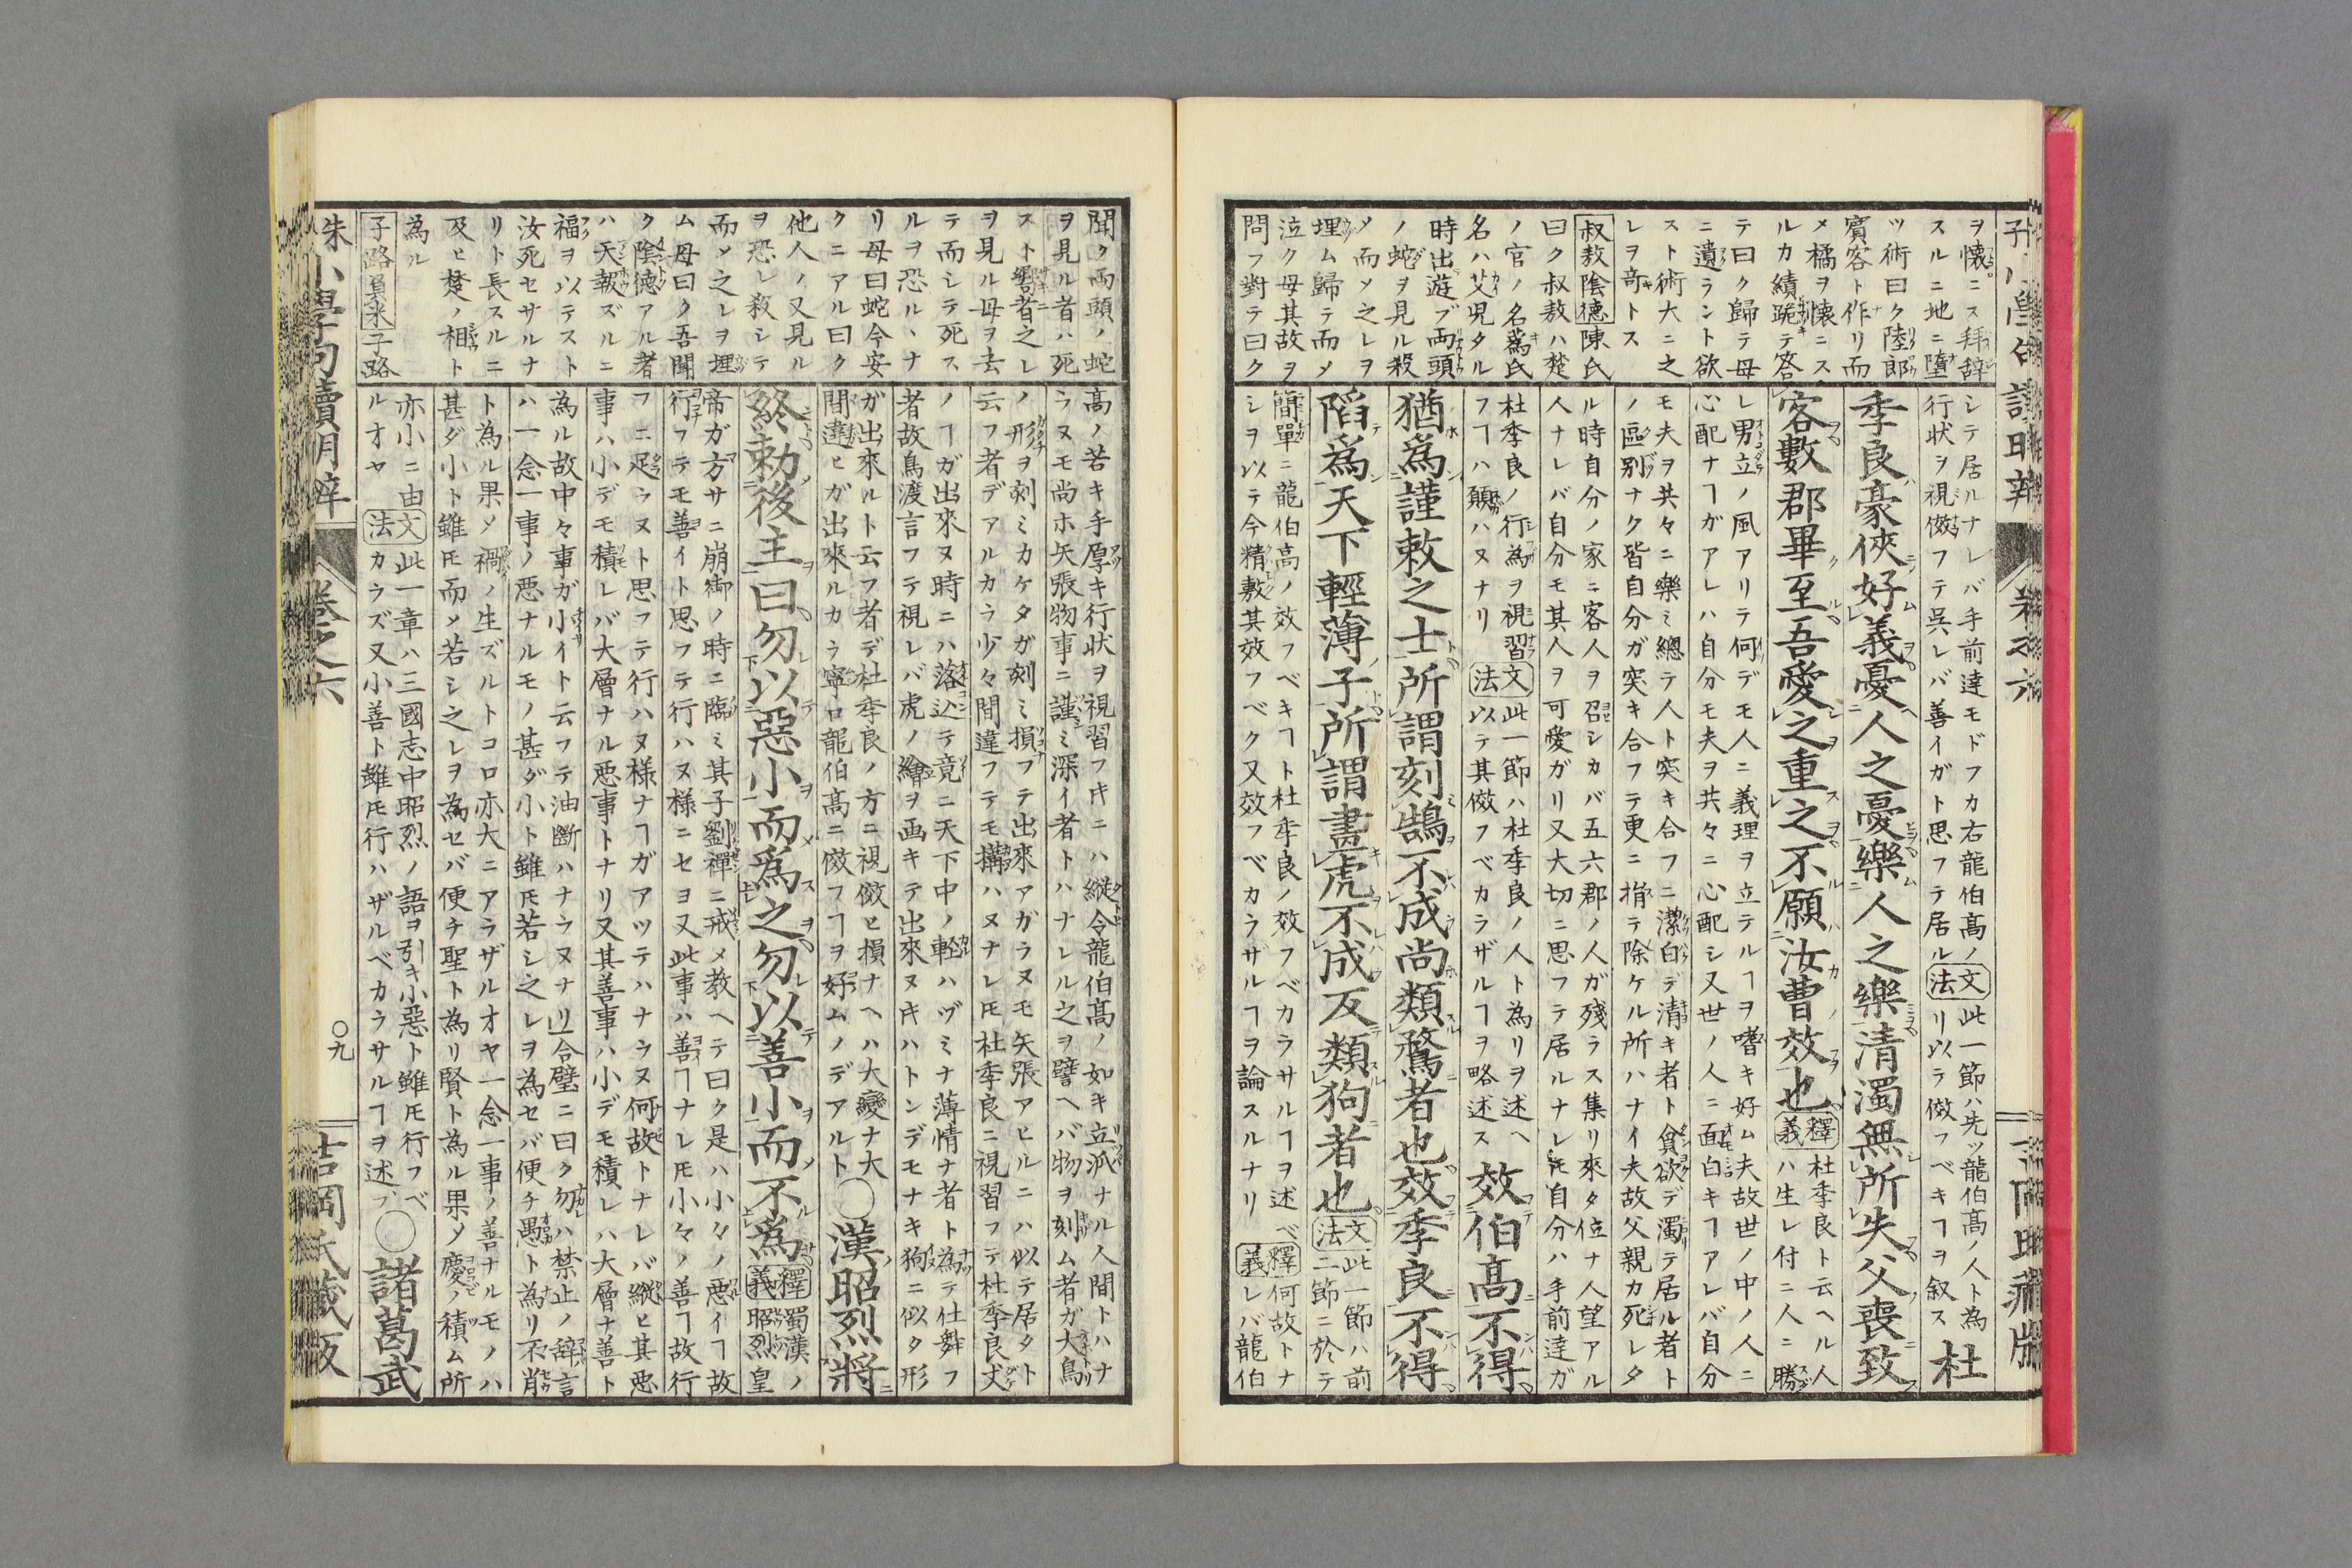 ヲ懷ニス拜辞
スルニ地ニ墮
ツ術曰ク陸郎
賓客ト作リ而
メ橘ヲ懷ニス
ルカ績跪テ答
テ曰ク歸テ母
ニ遺ラント欲
スト術大ニ之
レヲ奇トス
叔敖陰德陳氏
曰ク叔敖ハ楚
ノ官ノ名蔿氏
名ハ艾児タル
時出遊ブ両頭
ノ蛇ヲ見ル殺
メ而メ之レヲ
埋ム歸テ而メ
泣ク母其故ヲ
問フ對テ曰ク
シテ居ルナレバ手前達モドフカ右龍伯髙ノ
行状ヲ視倣フテ呉レバ善イガト思フテ居ル
文法
此一節ハ先ッ龍伯髙ノ人ト為
リ以テ倣フベキヿヲ叙ス
杜
季良豪俠好義憂人之憂樂人之樂清濁無所失父喪致
客數郡畢至吾愛之重之不願汝曹效也
釋義
杜季良ト云ヘル人
ハ生レ付ニ人ニ勝
レ男立ノ風アリテ何デモ人ニ義理ヲ立テルヿヲ嗜キ好ム夫故世ノ中ノ人ニ
心配ナヿガアレハ自分モ夫ヲ共々ニ心配シ又世ノ人ニ面白キヿアレバ自分
モ夫ヲ共々ニ樂ミ總テ人ト突キ合フニ潔白デ清キ者ト貪欲デ濁テ居ル者ト
ノ區别ナク皆自分ガ突キ合フテ更ニ指テ除ケル所ハナイ夫故父親カ死レタ
ル時自分ノ家ニ客人ヲ召シカバ五六郡ノ人ガ殘ラス集リ來タ位ナ人望アル
人ナレバ自分モ其人ヲ可愛ガリ又大切ニ思フテ居ルナレ𪜈自分ハ手前達ガ
杜季良ノ行為ヲ視習
フヿハ願ハヌナリ
文法
此一節ハ杜季良ノ人ト為リヲ述ヘ
以テ其倣フベカラザルヿヲ略述ス
效伯髙不得
猶爲謹敕之士所謂刻鵠不成尚類鶩者也效季良不得
陷爲天下輕薄子所謂畫虎不成反類狗者也
文法
此一節ハ前
二節ニ於テ
簡單ニ龍伯髙ノ效フベキヿト杜季良ノ效フベカラサルヿヲ述ベ
シヲ以テ今精敷其效フベク又效フベカラザルヿヲ論スルナリ
釋義
何故トナ
レバ龍伯
聞ク両頭ノ蛇
ヲ見ル者ハ死
スト嚮者之レ
ヲ見ル母ヲ去
テ而シテ死ス
ルヲ恐ルヽナ
リ母曰蛇今安
クニアル曰ク
他人ノ又見ル
ヲ恐レ殺シテ
而メ之レヲ埋
ム母曰ク吾聞
ク陰德アル者
ハ天報ズルニ
福ヲ以テスト
汝死セサルナ
リト長スルニ
及ヒ楚ノ相ト
為ル
子路負米子路
髙ノ若キ手厚キ行状ヲ視習フ𪜈ニハ縦令龍伯髙ノ如キ立派ナル人間トハナ
ラヌモ尚ホ矢張物事ニ謹ミ深イ者トハナレル之ヲ譬ヘバ物ヲ刻ム者ガ大鳥
ノ形ヲ刻ミカケタガ刻ミ損フテ出來アガラヌモ矢張アヒルニハ似テ居タト
云フ者デアルカラ少々間違フテモ搆ハヌナレ𪜈杜季良ニ視習フテ杜季良丈
ノヿガ出來ヌ時ニハ落込テ竟ニ天下中ノ軽ハヅミナ薄情ナ者ト為テ仕舞フ
者故鳥渡言フテ視レバ虎ノ繪ヲ画キテ出來ヌキハトンデモナキ狗ニ似タ形
ガ出來ルト云フ者デ杜季良ノ方ニ視倣ヒ損ナヘハ大變ナ大
間違ヒガ出來ルカラ寧ロ龍伯髙ニ倣フヿヲ好ムノデアルト
○漢昭烈將
終勅後主曰勿以惡小而爲之勿以善小而不爲
釋義
蜀漢ノ
昭烈皇
帝ガ方サニ崩御ノ時ニ臨ミ其子劉禪ニ戒メ教ヘテ曰ク是ハ小々ノ悪イヿ故
行フテモ善イト思フテ行ハヌ様ニセヨ又此事ハ善ヿナレ𪜈小々ノ善ヿ故行
フニ足ラヌト思フテ行ハヌ様ナヿガアツテハナラヌ何故トナレバ縦ヒ其悪
事ハ小デモ積レバ大層ナル悪事トナリ又其善事ハ小デモ積レハ大層ナ善ト
為ル故中々事ガ小イト云フテ油斷ハナラヌナリ合壁ニ曰ク勿ハ禁止ノ辞言
ハ一念一事ノ悪ナルモノ甚ダ小ト雖𪜈若シ之レヲ為セバ便チ愚ト為リ不肖
ト為ル果メ禍ノ生ズルトコロ亦大ニアラザルオヤ一念一事ノ善ナルモノハ
甚ダ小ト雖𪜈而メ若シ之レヲ為セバ便チ聖ト為リ賢ト為ル果メ慶ノ積ム所
亦小ニ由
ルオヤ
文法
此一章ハ三國志中昭烈ノ語ヲ引キ小惡ト雖𪜈行フベ
カラズ又小善ト雖𪜈行ハザルベカラサルヿヲ述ブ
○諸葛武
小學句讀明辞
卷之六
○九
吉岡氏藏版